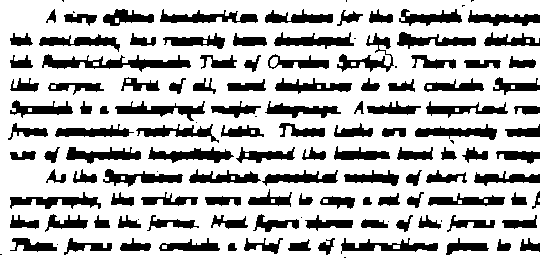 A new offline handwritten database for the Spanish language
ish sentences, has recently been developed: the Spartacus databa
ish Restricted-domain Task of Cursive Script). There were two
this corpus. First of all, most databases do not contain Spani
Spanish is a widespread major language. Another important rea
from semantic-restricted tasks. These tasks are commonly used
use of linguistic knowledge beyond the lexicon level in the recogn
As the Spartacus database consisted mainly of short sentence
paragraphs, the writers were asked to copy a set of sentences in f
line fields in the forms. Next figure shows one of the forms used
These forms also contain a brief set of instructions given to the